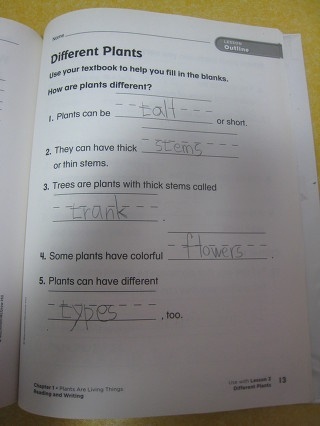 Name
LESSON
Outline
Different Plants
Use your textbook to help you fill in the blanks.
How are plants different?
1. Plants can be talt or short.
2. They can have thick stems
or thin stems.
3. Trees are plants with thick stems called
trank .
4. Some plants have colorful flowers .
5. Plants can have different
types , too.
Chapter 1 • Plants Are Living Things
Reading and Writing
Use with Lesson 2
Different Plants
13